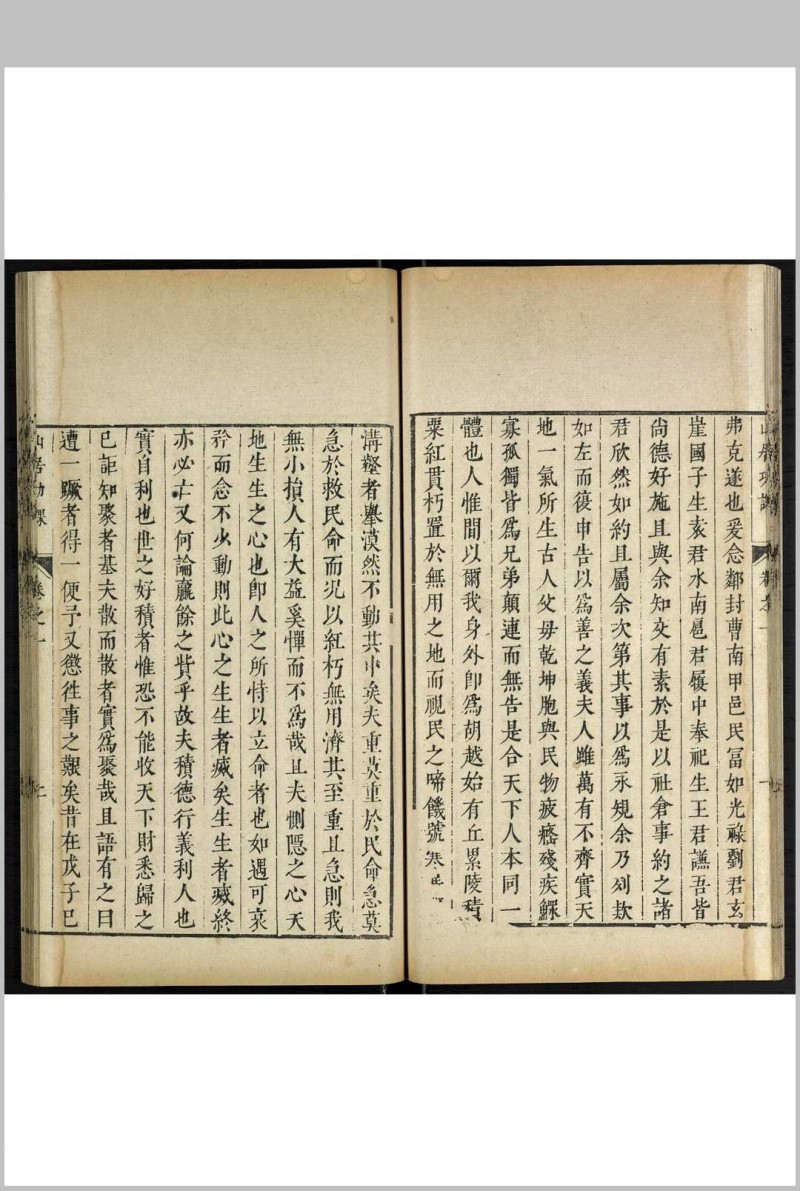 弗克遂也爰念鄰封曹南甲邑民冨如光祿劉君玄
崖國子生袁君水南扈君履中奉祀生王君謙吾皆
尙德好施且與余知交有素於是以社倉事約之諸
君欣然如約且屬余次第其事以爲永䂓余乃列欵
如左而復申告以爲善之義夫人雖萬有不齊實天
地一氣所生古人父毋乾坤胞與民物疲癃殘疾鰥
寡孤獨皆爲兄弟顛連而無告是合天下人本同一
體也人惟間以爾我身外卽爲胡越始有丘累陵積
粟紅貫朽置於無用之地而視民之啼饑號寒
溝壑者擧漠然不動其中矣夫重莫重於民命急莫
急於救民命而况以紅朽無用濟其至重且急則我
無小損人有大益奚憚而不爲哉且夫惻隱之心天
地生生之心也卽人之所恃以立命者也如遇可哀
矜而念不少動則此心之生生者滅矣生生者滅終
亦必亡又何論贏餘之貲乎故夫積德行義利人也
實自利也世之好積者惟恐不能收天下財悉歸之
已詎知聚者基夫散而散者實爲聚哉且語有之曰
遭一蹶者得一便予又懲徃事之艱矣昔在戊子巳
山居功課 卷之一